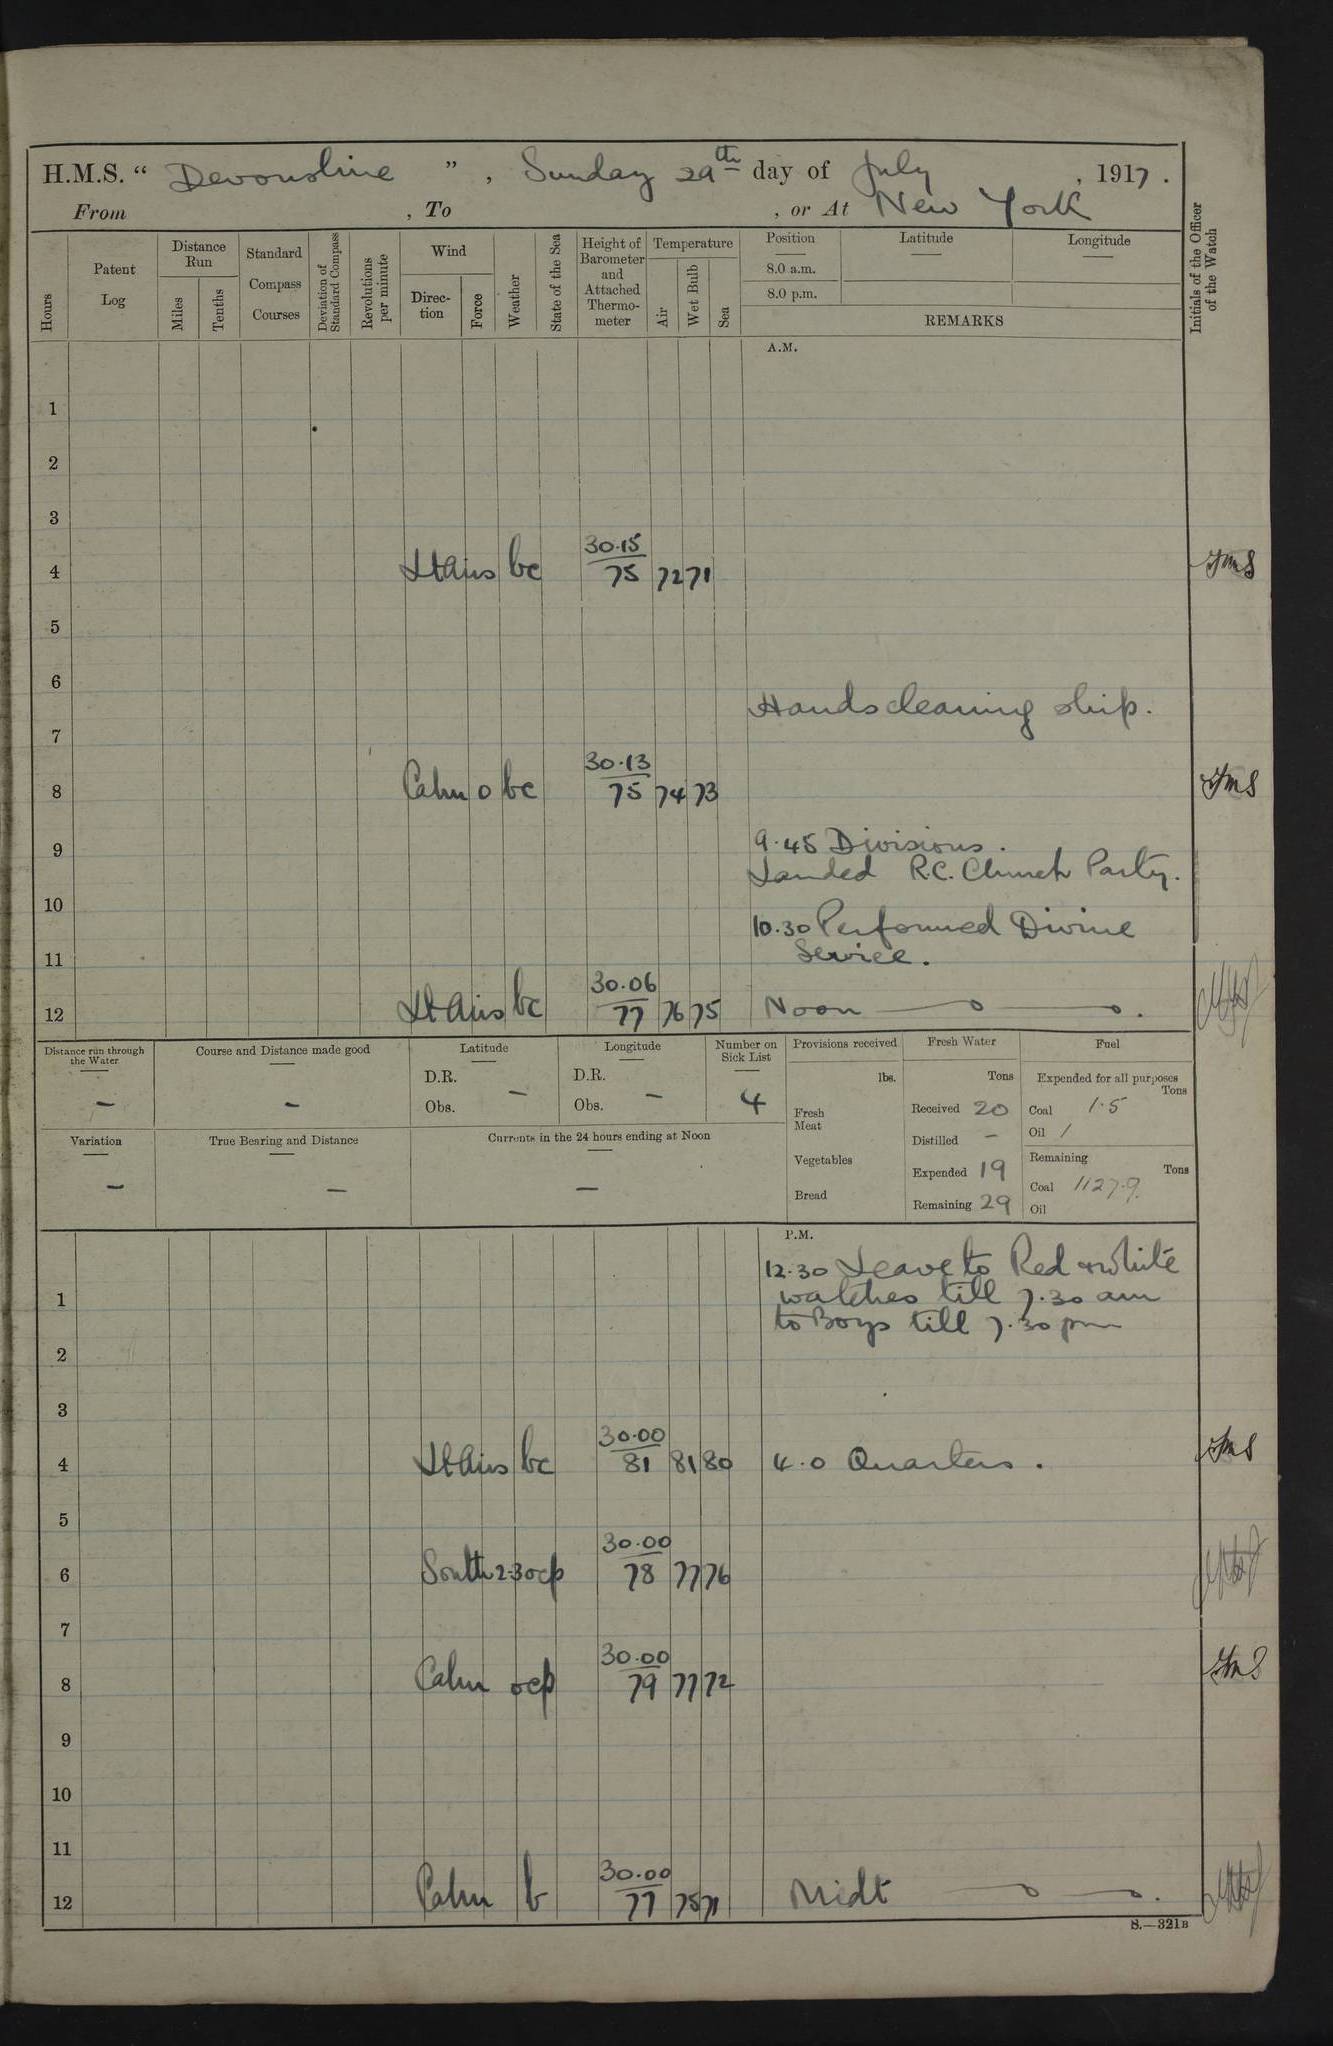 H.M.S. " Devonshire ", Sunday 29th day of July, 1917.
From , To , or At New York
Hours
Patent Log
Distance Run
Miles
Tenths
Standard Compass Courses
Deviation of Standard Compass
Revolutions per minute
Wind
Direc-tion
Force
Weather
State of the Sea
Height of Barometer and Attached Thermo-meter
Temperature
Air
Wet Bulb
Sea
Position
8.0 a.m.
8.0 p.m.
Latitude
Longitude
REMARKS
Initials of the Officer of the Watch
A.M.
1
2
3
30.15
4 Lt Airs bc 75 72 71
5
6
Hands cleaning ship.
7
30.13
8 Calm 0 bc 75 74 73
9.45 Divisions.
9
Landed R.C. Church Party.
10
10.30 Performed Divine
Service.
11
30.06
12 Lt Airs bc 77 76 75 Noon
Distance run through the Water
–
Course and Distance made good
–
Latitude
D.R.
Obs. –
Longitude
D.R.
Obs. –
Number on Sick List
4
Provisions received
lbs.
Fresh Meat
Vegetables
Bread
Fresh Water
Tons
Received 20
Distilled –
Expended 19
Remaining 29
Fuel
Expended for all purposes
Tons
Coal 1.5
Oil /
Remaining
Tons
Coal 1127.9.
Oil
Variation
–
True Bearing and Distance
–
Currents in the 24 hours ending at Noon
–
P.M.
12.30 Leave to Red & White
1 watches till 7.30 am
to Boys till 7.30 pm
2
3
30.00
4 Lt Airs bc 81 81 80 4.0 Quarters.
5
30.00
6 South 2-3 ocp 78 77 76
7
30.00
8 Calm ocp 79 77 72
9
10
11
30.00
12 Calm b 77 75 71 Midt
S.—321B